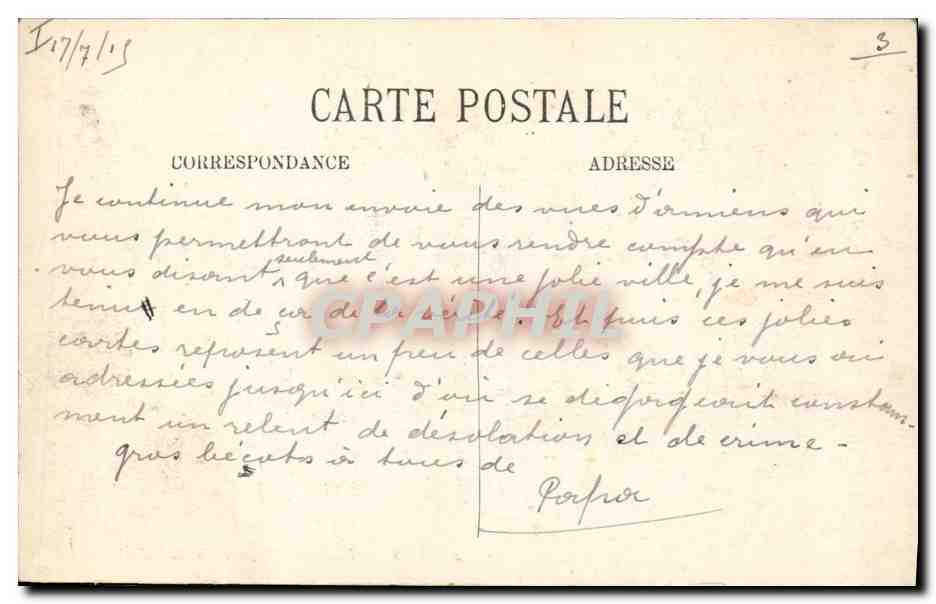 I 17/7/15
3
CARTE POSTALE
CORRESPONDANCE
ADRESSE
Je continue mon envoie des vues d'amiens qui
vous permettront de vous rendre compte qu'en
vous disant seulement que c'est une jolie ville, je me suis
tenu en deça de la vérité. Et puis ces jolies
cartes reposent un peu de celles que je vous ai
adressées jusqu'ici d'où se dégorgeait constam-
ment un relent de désolation et de crime -
gros bécots à tous de
Papa
CPAPHIL